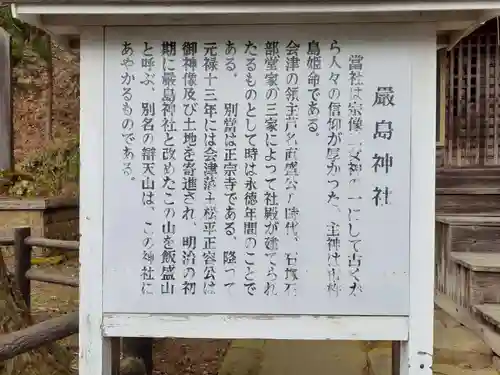 嚴島神社
當社は宗像三女神の一にして古くか
ら人々の信仰が厚かった、主神は市杵
島姫命である。
会津の領主芦名直盛公の時代、石塚石
部堂家の三家によって社殿が建てられ
たるものとして時は永徳年間のことで
ある。 別當は正宗寺である、降って
元禄十三年には会津藩主松平正容公は
御神像及び土地を寄進され、明治の初
期に嚴島神社と改めたこの山を飯盛山
と呼ぶ、別名の辯天山は、この神社に
あやかるものである。